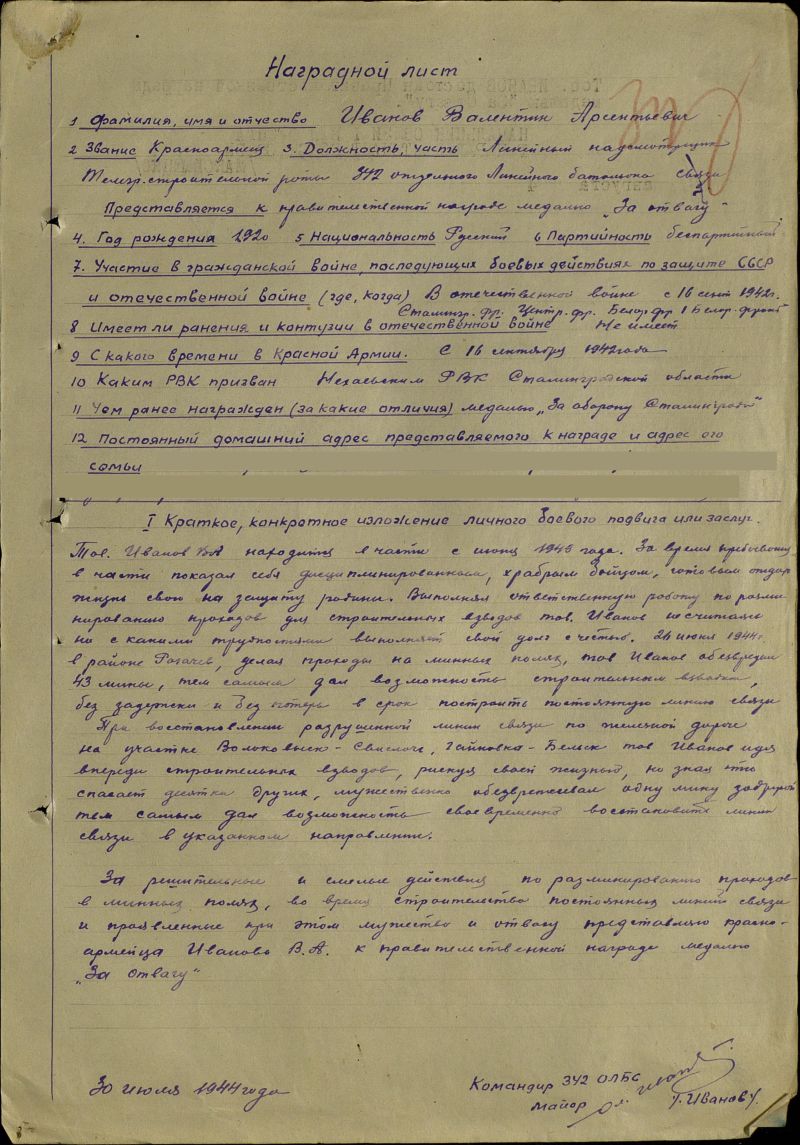 Наградной лист
1 Фамилия, имя и отчество Иванов Валентин Арсентьевич
2 Звание Красноармеец 3. Должность, часть Линейный надсмотрщик
Телегр. строительной роты 342 отдельного Линейного батальона связи
Представляется к правительственной награде медалью „За отвагу"
4. Год рождения 1920 5 Национальность Русский 6 Партийность беспартийный
7. Участие в гражданской войне, последующих боевых действиях по защите СССР
и отечественной войне (где, когда) В отечественной войне с 16 сент 1942г.
Сталингр. фр. Центр. фр. Белор. фр 1 Белор. фронт
8 Имеет ли ранения и контузии в отечественной войне Не имеет
9 С какого времени в Красной Армии. С 16 сентября 1942 года
10 Каким РВК призван Нехаевским РВК Сталинградской области
11 Чем ранее награжден (за какие отличия) медалью „За оборону Сталинграда"
12 Постоянный домашний адрес представляемого к награде и адрес его
семьи
I Краткое, конкретное изложение личного боевого подвига или заслуг.
Тов. Иванов ВА находится в части с 1943 года. За время пребывания
в части показал себя дисциплинированным, храбрым бойцом, готовым отдать
жизнь свою на защиту родины. Выполняя ответственную работу по разми-
нированию проходов для строительных взводов тов. Иванов не считаясь
ни с какими трудностями выполняет свой долг с честью. 24 июня 1944г.
в районе Рогачев, делая проходы на минных полях, тов Иванов обезвредил
43 мины, тем самым дал возможность строительным взводам,
без задержки и без потерь в срок построить постоянную линию связи
При восстановлении разрушенной линии связи по железной дороге
на участке Волковыск - Свислочь, Гайновка - Бельск тов Иванов идя
впереди строительных взводов, рискуя своей жизнью, но зная что
спасает десятки других, мужественно обезвреживал одну мину за другой
тем самым дал возможность своевременно восстановить линию
связи в указанном направлении.
За решительные и смелые действия по разминированию проходов
в минных полях, во время строительства постоянных линий связи
и проявленные при этом мужество и отвагу представляю красно-
армейца Иванова В.А. к правительственной награде медалью
„За отвагу"
30 июля 1944 года
Командир 342 ОЛБС
майор /Иванов/.